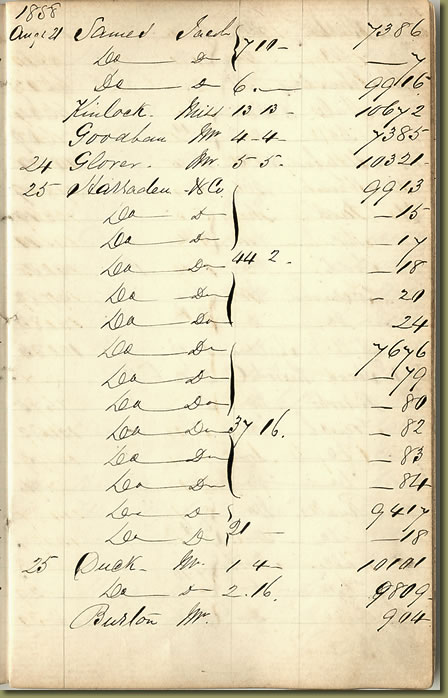 1858
Augt 21 James Jack 7386
Do D 7 10 — 7
Do D 6. — 9916
Kinlock. Miss 13 13 - 10672
Goodban Mr 4-4- 7385
24 Glover. Mr. 5 5. 10321-
25 Harraden & Co. 9913
Do D — 15
Do D — 17
Do Do 44 2. — 18
Do Do — 20
Do Do 24
Do Do 7676
Do Do — 79
Do Do — 80
Do Do 37 16. — 82
Do Do — 83
Do Do — 84
Do D 9417
Do D 21 — — 18
25 Duck- Mr. 1 4- 10101
Do D 2.16. 9809
Burton Mr. 904